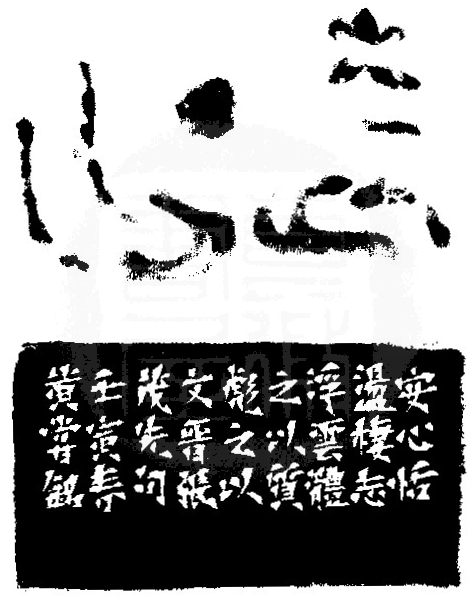 安心恬
盪棲志
浮雲體
之以質
彪之以
文晉張
茂先句
壬寅壽
黃嘗銘